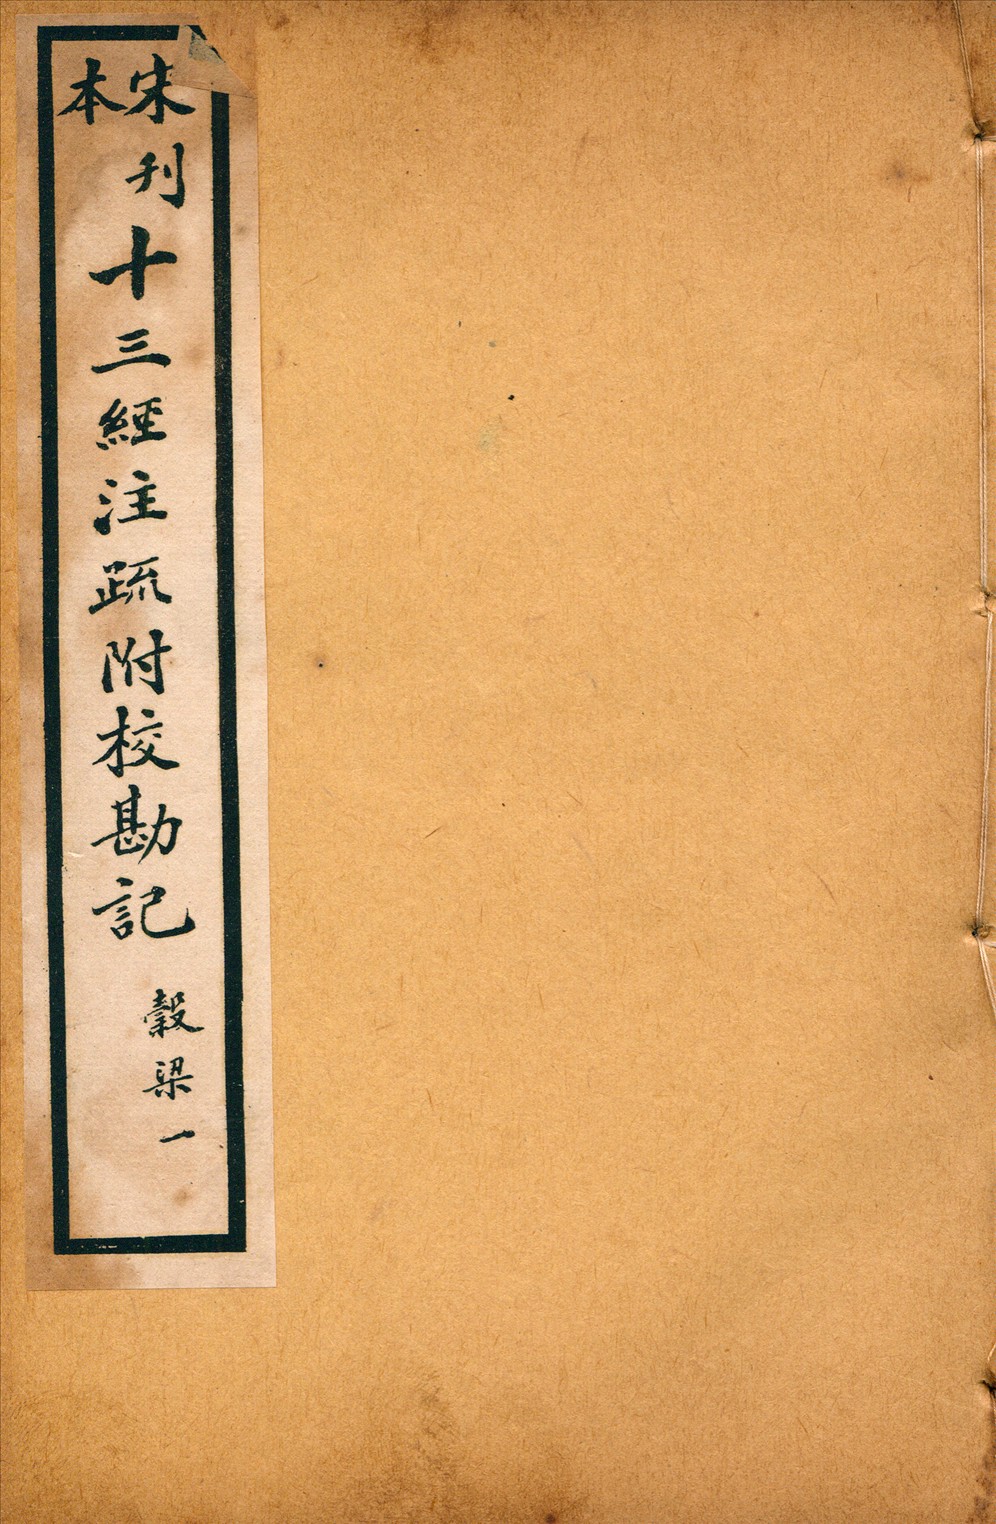 宋刊本十三經注疏附校勘記
穀梁一